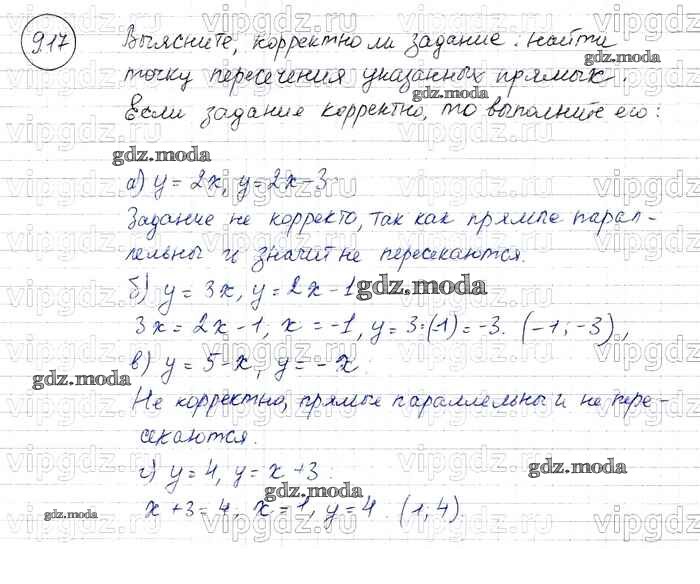 917
Выясните, корректно ли задание: найти
точку пересечения указанных прямых.
Если задание корректно, то выполните его:
а) y = 2x, y = 2x-3
Задание не корректо, так как прямые парал-
лельны и значит не пересекаются.
б) y = 3x, y = 2x-1
3x = 2x-1; x = -1, y = 3·(-1) = -3. (-1; -3),
в) y = 5-x, y = -x:
Не корректно, прямые параллельны и не пере-
секаются.
г) y = 4, y = x+3:
x+3=4, x=1, y=4. (1,4)
gdz.moda
vipgdz.ru